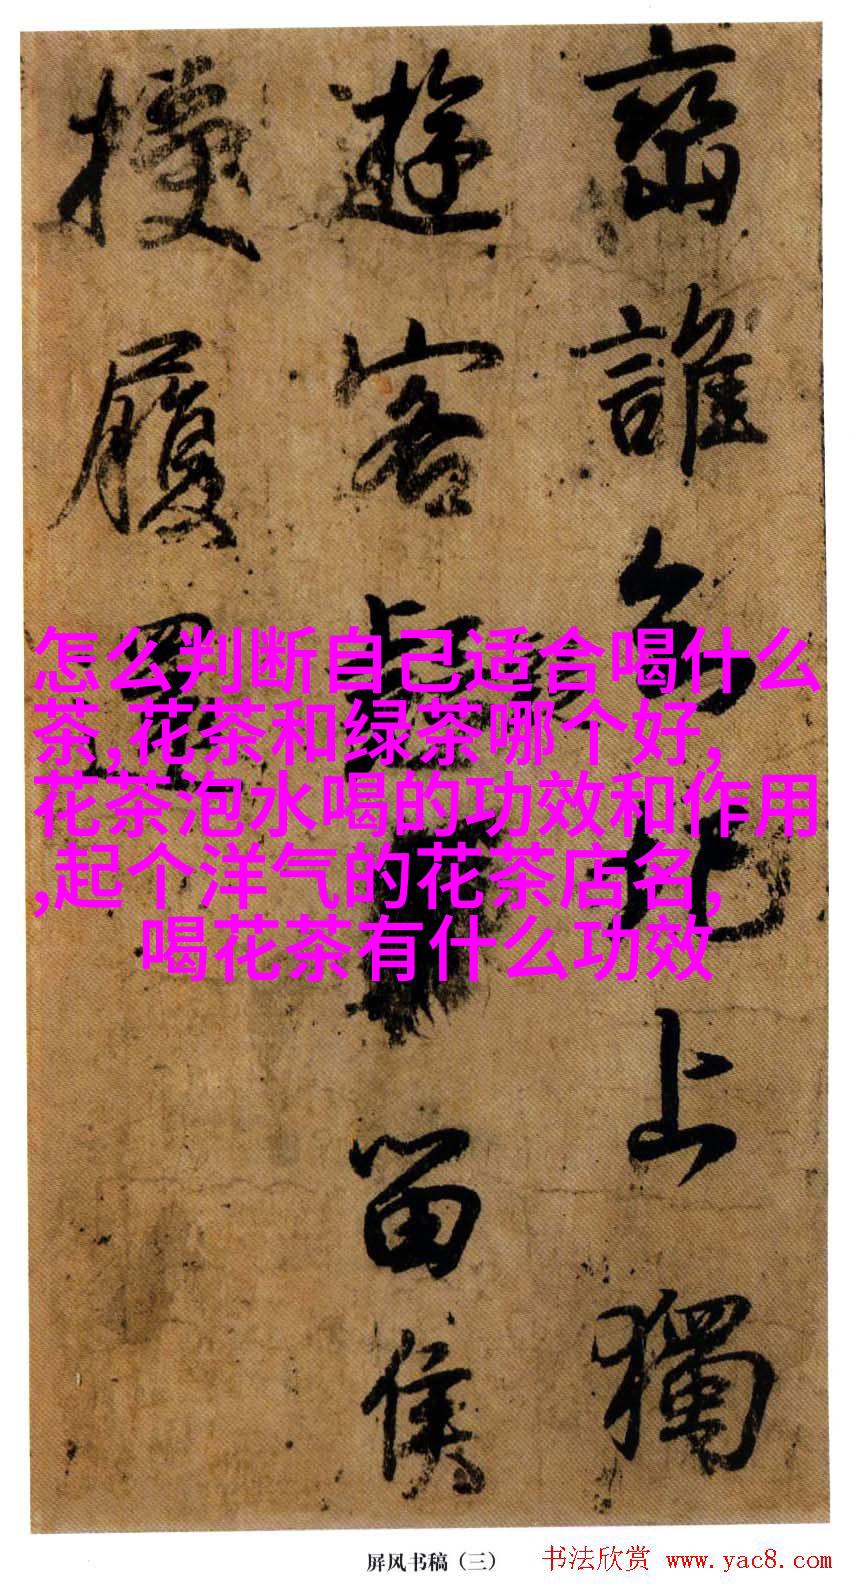 巒誰
上獨
遊客
留侯
履
怎么判断自己适合喝什么
茶,花茶和绿茶哪个好,
花茶泡水喝的功效和作用
,起个洋气的花茶店名,
喝花茶有什么功效
屏风书稿（三）
书法欣赏 www.yac8.com